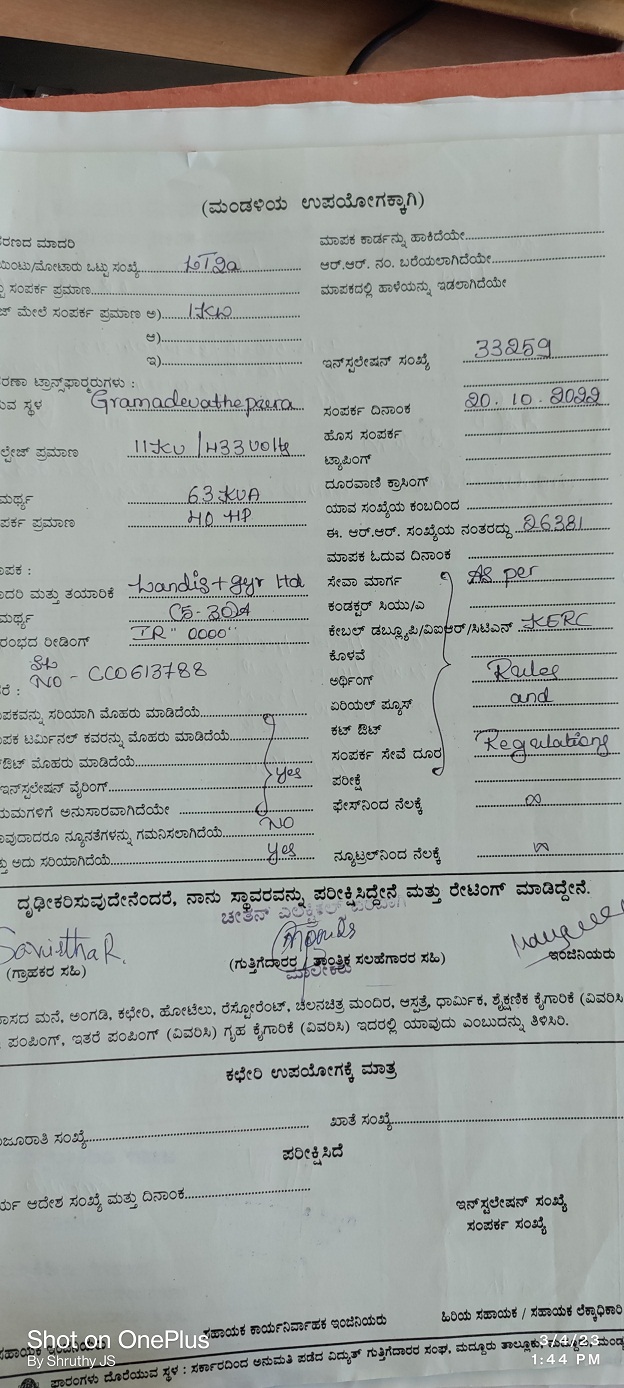 (ಮಂಡಳಿಯ ಉಪಯೋಗಕ್ಕಾಗಿ)
ರಣದ ಮಾದರಿ
ಮಾಪಕ ಕಾರ್ಡನ್ನು ಹಾಕಿದೆಯೇ
ಯಿಂಟು/ಮೋಟಾರು ಒಟ್ಟು ಸಂಖ್ಯೆ LT2a
ಆರ್.ಆರ್. ನಂ. ಬರೆಯಲಾಗಿದೆಯೇ
ಸಂಪರ್ಕ ಪ್ರಮಾಣ
ಮಾಪಕದಲ್ಲಿ ಹಾಳೆಯನ್ನು ಇಡಲಾಗಿದೆಯೇ
ಜ್ ಮೇಲೆ ಸಂಪರ್ಕ ಪ್ರಮಾಣ ಅ) 1KW
ಆ)
ಇ)
ಇನ್‌ಸ್ಟಲೇಷನ್ ಸಂಖ್ಯೆ 33259
ರಣಾ ಟ್ರಾನ್ಸ್‌ಫಾರ್ಮರುಗಳು :
ುವ ಸ್ಥಳ Gramadevathepura
ಸಂಪರ್ಕ ದಿನಾಂಕ 20.10.2022
ಹೊಸ ಸಂಪರ್ಕ
ಲ್ಟೇಜ್ ಪ್ರಮಾಣ 11KV/433 Volts
ಟ್ಯಾಪಿಂಗ್
ದೂರವಾಣಿ ಕ್ರಾಸಿಂಗ್
ಮರ್ಥ್ಯ 63 KVA
ಯಾವ ಸಂಖ್ಯೆಯ ಕಂಬದಿಂದ
ಪರ್ಕ ಪ್ರಮಾಣ 40 HP
ಈ. ಆರ್.ಆರ್. ಸಂಖ್ಯೆಯ ನಂತರದ್ದು 26381
ಮಾಪಕ ಓದುವ ದಿನಾಂಕ
ಾಪಕ :
ಸೇವಾ ಮಾರ್ಗ As per
ಾದರಿ ಮತ್ತು ತಯಾರಿಕೆ Landis + gyr Ltd
ಕಂಡಕ್ಟರ್ ಸಿಯು/ಎ
ಮರ್ಥ್ಯ C5-30A
ಕೇಬಲ್ ಡಬ್ಲ್ಯೂಪಿ/ವಿಐಆರ್/ಸಿಟಿಎನ್ KERC
ರಂಭದ ರೀಡಿಂಗ್ IR "0000"
ಕೊಳವೆ
NO - CC0613788
ಅರ್ಥಿಂಗ್ Rules
ರೆ :
ಏರಿಯಲ್ ಫ್ಯೂಸ್ and
ಾಪಕವನ್ನು ಸರಿಯಾಗಿ ಮೊಹರು ಮಾಡಿದೆಯೆ
ಕಟ್ ಔಟ್
ಾಪಕ ಟರ್ಮಿನಲ್ ಕವರನ್ನು ಮೊಹರು ಮಾಡಿದೆಯೆ
ಸಂಪರ್ಕ ಸೇವೆ ದೂರ Regulations
ಔಟ್ ಮೊಹರು ಮಾಡಿದೆಯೆ
ಪರೀಕ್ಷೆ
ಇನ್‌ಸ್ಟಲೇಷನ್ ವೈರಿಂಗ್ Yes
ಫೇಸ್‌ನಿಂದ ನೆಲಕ್ಕೆ ∞
ಯಮಗಳಿಗೆ ಅನುಸಾರವಾಗಿದೆಯೇ
ಾವುದಾದರೂ ನ್ಯೂನತೆಗಳನ್ನು ಗಮನಿಸಲಾಗಿದೆಯೆ NO
ನ್ಯೂಟ್ರಲ್‌ನಿಂದ ನೆಲಕ್ಕೆ ∞
ತ್ತು ಅದು ಸರಿಯಾಗಿದೆಯೆ Yes
ದೃಢೀಕರಿಸುವುದೇನೆಂದರೆ, ನಾನು ಸ್ಥಾವರವನ್ನು ಪರೀಕ್ಷಿಸಿದ್ದೇನೆ ಮತ್ತು ರೇಟಿಂಗ್ ಮಾಡಿದ್ದೇನೆ.
Savitha R.
(ಗ್ರಾಹಕರ ಸಹಿ)
(ಗುತ್ತಿಗೆದಾರರ / ತಾಂತ್ರಿಕ ಸಲಹೆಗಾರರ ಸಹಿ)
ಇಂಜಿನಿಯರು
ಮಾಲೀಕರು
ಾಸದ ಮನೆ, ಅಂಗಡಿ, ಕಛೇರಿ, ಹೋಟೆಲು, ರೆಸ್ಟೋರೆಂಟ್, ಚಲನಚಿತ್ರ ಮಂದಿರ, ಆಸ್ಪತ್ರೆ, ಧಾರ್ಮಿಕ, ಶೈಕ್ಷಣಿಕ ಕೈಗಾರಿಕೆ (ವಿವರಿಸಿ
ಪಂಪಿಂಗ್, ಇತರೆ ಪಂಪಿಂಗ್ (ವಿವರಿಸಿ) ಗೃಹ ಕೈಗಾರಿಕೆ (ವಿವರಿಸಿ) ಇದರಲ್ಲಿ ಯಾವುದು ಎಂಬುದನ್ನು ತಿಳಿಸಿರಿ.
ಕಛೇರಿ ಉಪಯೋಗಕ್ಕೆ ಮಾತ್ರ
ಜೂರಾತಿ ಸಂಖ್ಯೆ
ಖಾತೆ ಸಂಖ್ಯೆ
ಪರೀಕ್ಷಿಸಿದೆ
ರ್ಯ ಆದೇಶ ಸಂಖ್ಯೆ ಮತ್ತು ದಿನಾಂಕ
ಇನ್‌ಸ್ಟಲೇಷನ್ ಸಂಖ್ಯೆ
ಸಂಪರ್ಕ ಸಂಖ್ಯೆ
ಸಹಾಯಕ ಇಂಜಿನಿಯರು
ಸಹಾಯಕ ಕಾರ್ಯನಿರ್ವಾಹಕ ಇಂಜಿನಿಯರು
ಹಿರಿಯ ಸಹಾಯಕ / ಸಹಾಯಕ ಲೆಕ್ಕಾಧಿಕಾರಿ
ಫಾರಂಗಳು ದೊರೆಯುವ ಸ್ಥಳ : ಸರ್ಕಾರದಿಂದ ಅನುಮತಿ ಪಡೆದ ವಿದ್ಯುತ್ ಗುತ್ತಿಗೆದಾರರ ಸಂಘ, ಮದ್ದೂರು ತಾಲ್ಲೂಕು, ಮದ್ದೂರು, ಮಂಡ್ಯ
Shot on OnePlus
By Shruthy JS
3/4/23
1:44 PM